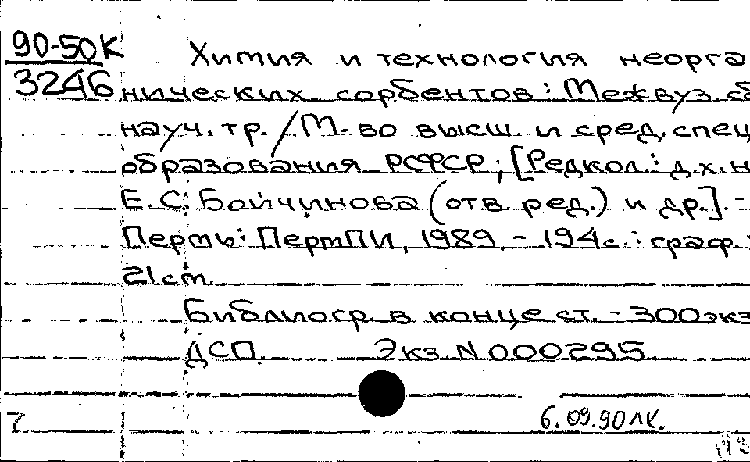 90-50К
3246
Химия и технология неорга
нических сорбентов: Межвуз. сб
науч. тр. / М-во высш. и сред. спец
образования РСФСР; [Редкол.: д.х.н
Е.С. Бойчинова (отв. ред.) и др.]. -
Пермь: ПермПИ, 1989. - 194 с.: граф.;
21 см.
Библиогр. в конце ст. - 300 экз
ДСП. Экз. N 000295
6.09.90 ЛК.